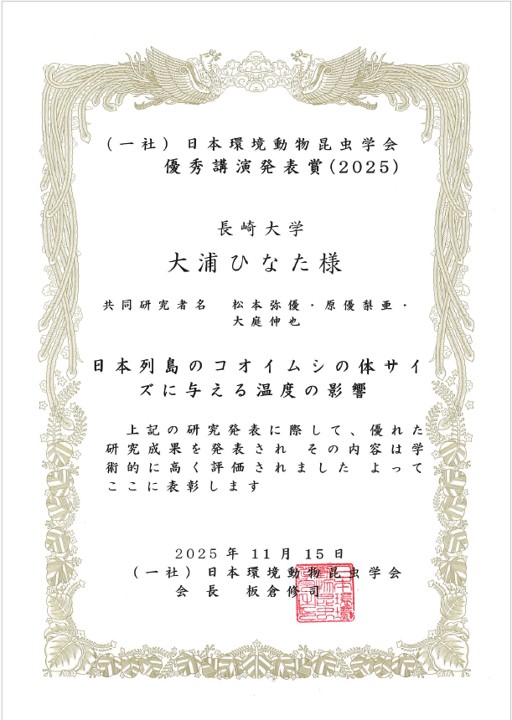 (一社)日本環境動物昆虫学会
優秀講演発表賞(2025)
長崎大学
大浦ひなた様
共同研究者名 松本弥優・原優梨亜・
大庭伸也
日本列島のコオイムシの体サイ
ズに与える温度の影響
上記の研究発表に際して、優れた
研究成果を発表され その内容は学
術的に高く評価されました よって
ここに表彰します
2025年 11月 15日
(一社)日本環境動物昆虫学会
会長 板倉修司